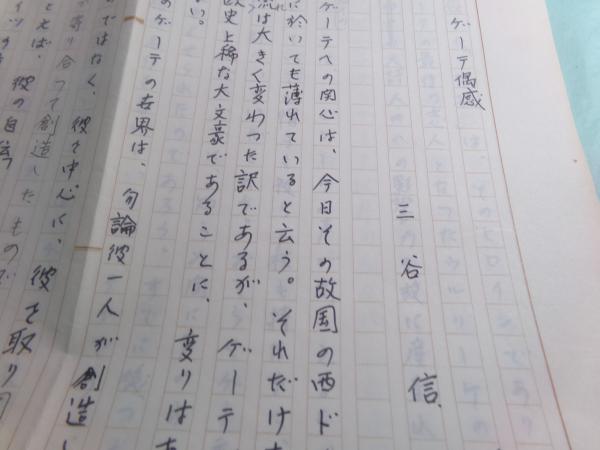 ゲーテ偶感
三谷信
ゲーテへの関心は、今日その故国の西ド
に於いても薄れていると云う。それだけ
流は大きく変わった訳であるが、ゲーテ
史上稀な大文豪であることに、変りはあ
ない。
のゲーテの世界は、勿論彼一人が創造し
ではなく、彼を中心に、彼を取り
寄り合って創造したもので
とえば、彼の自伝